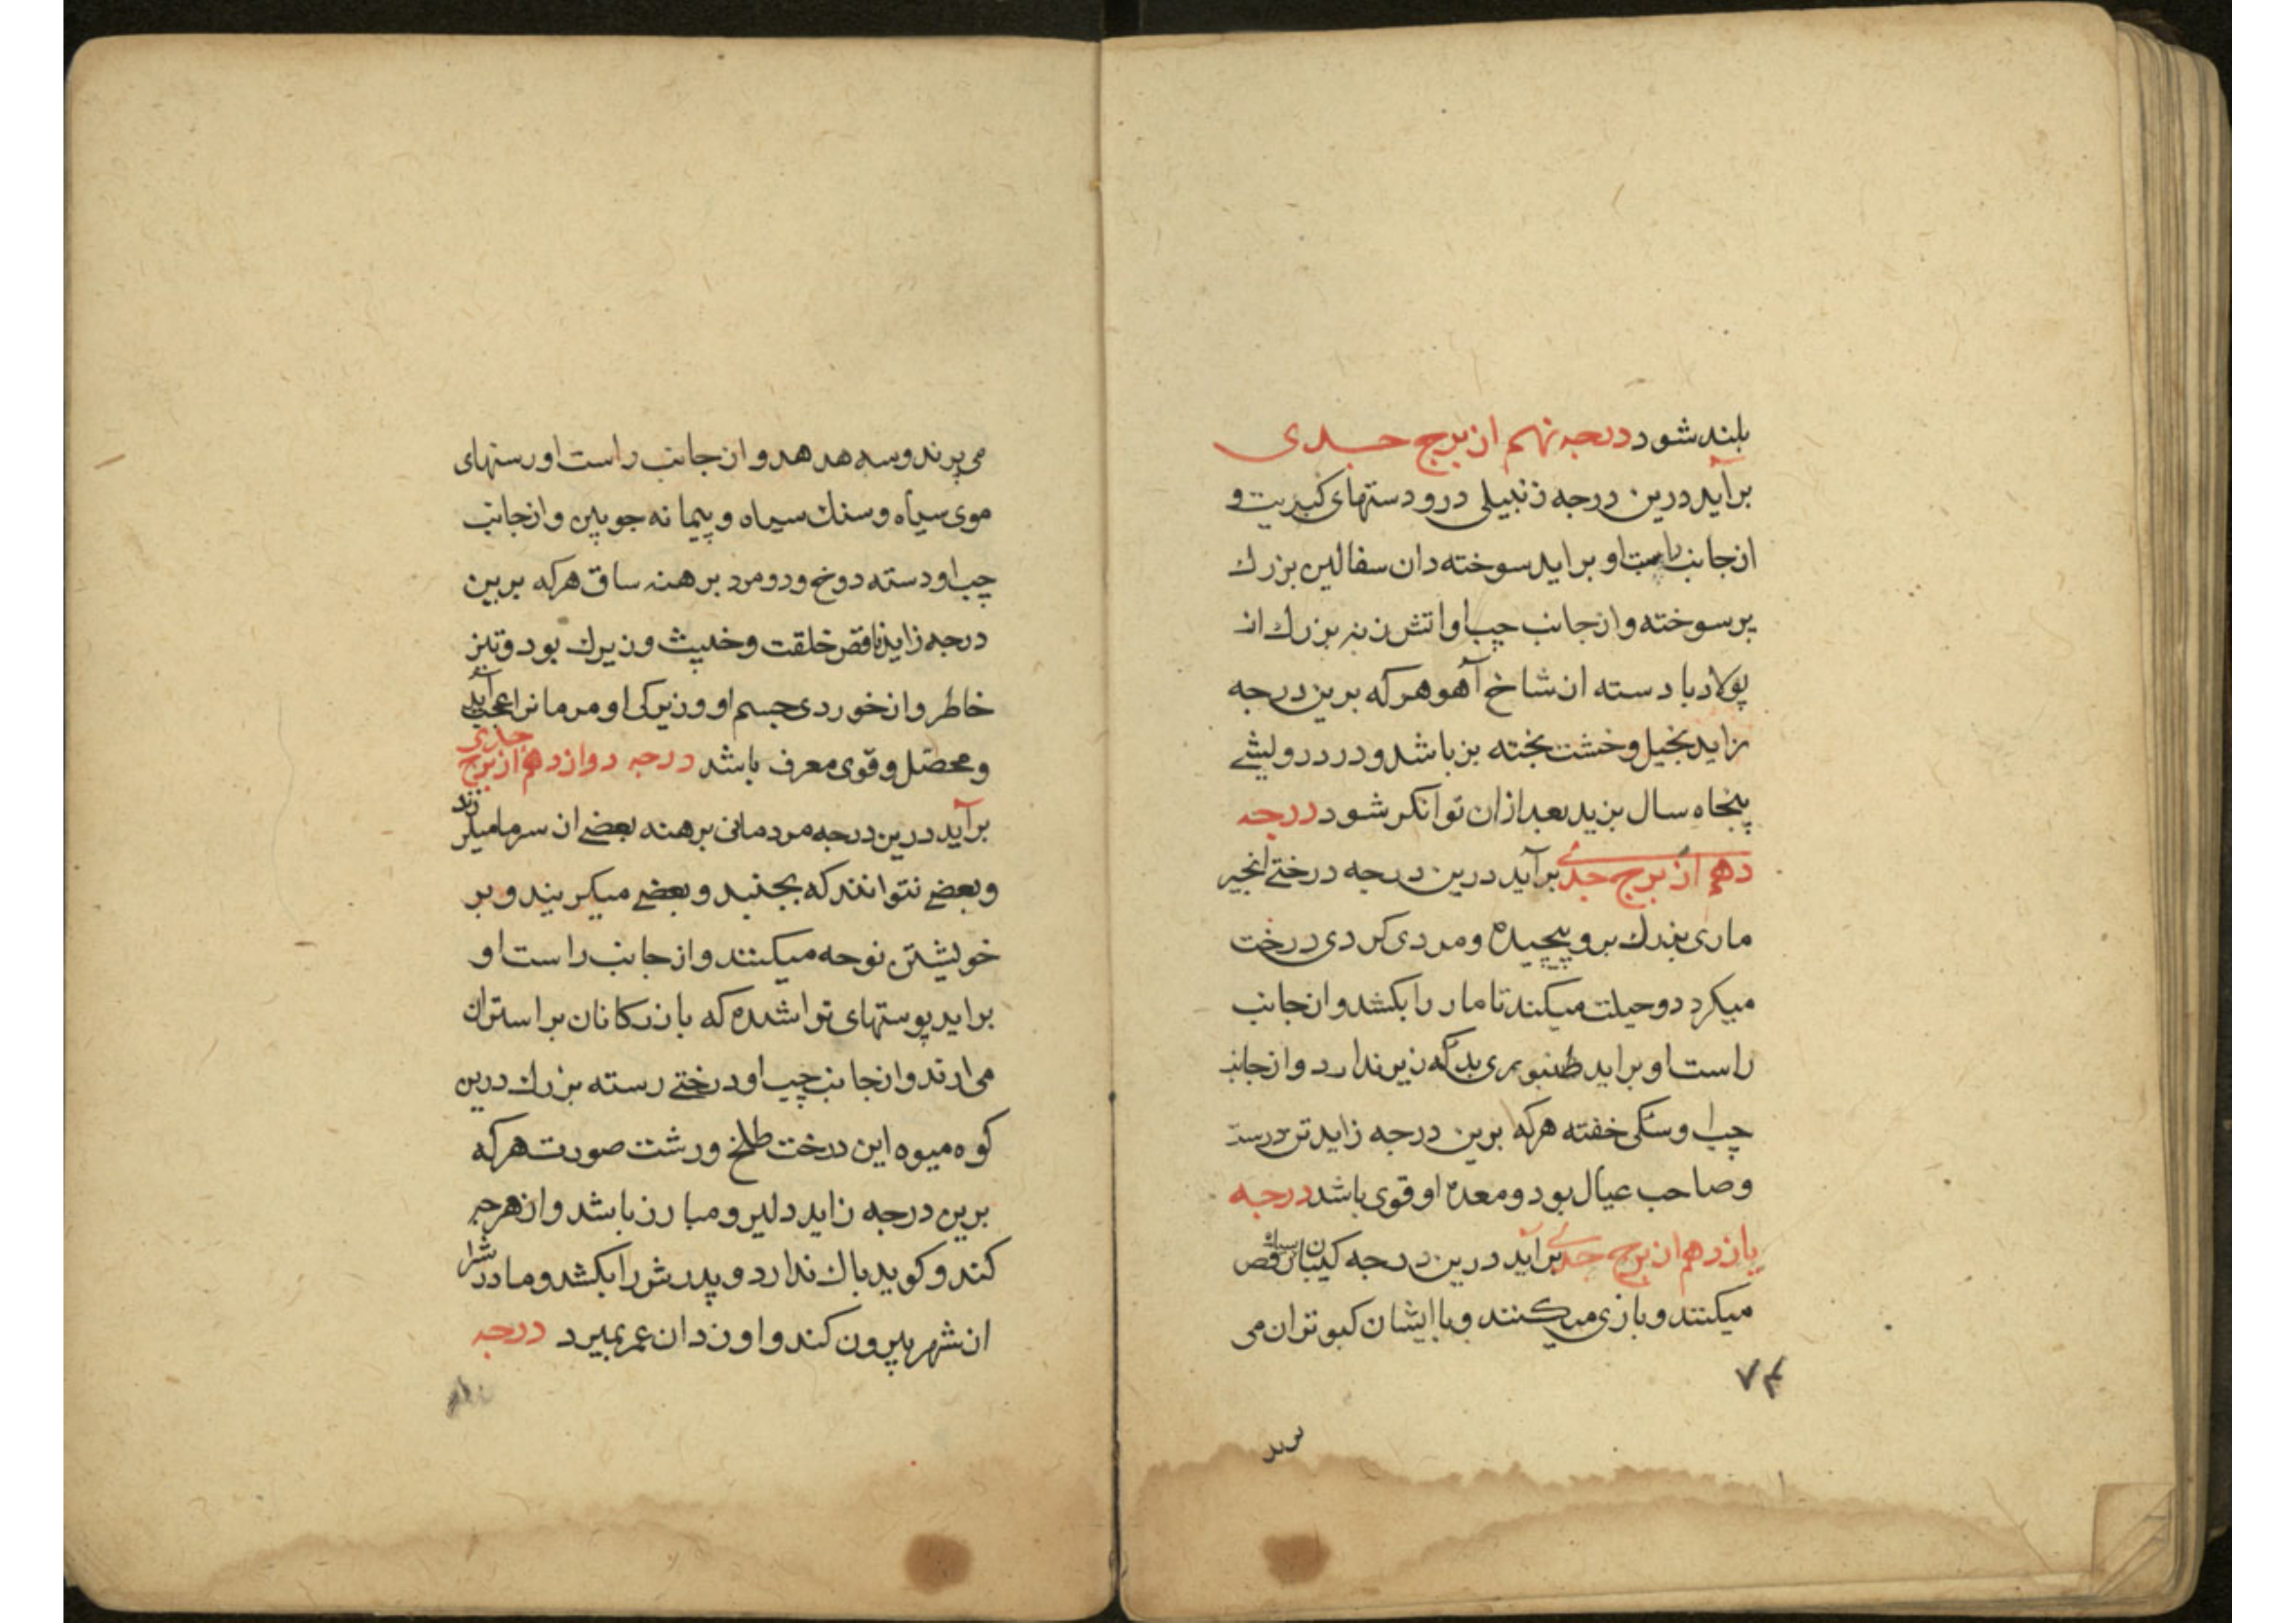 بلند شود درجه نهم از برج جدی
برآید درین درجه زنبیلی درو دستهای کبریت و
از جانب راست او براید سوخته دان سفالین بزرك
پر سوخته و از جانب چپ او اتش زنه بزرك از
پولاد با دسته از شاخ آهو هر که برین درجه
زاید بخیل و خشت پخته پز باشد و در درویشی
پنجاه سال بزید بعد ازان توانکر شود درجه
دهم از برج جدی برآید درین درجه درختی انجیر
ماری بزرك برو پیچیده و مردی کرد درخت
میکرد د و حیلت میکند تا مار را بکشد و از جانب
راست او براید طنبوری بد که زیر ندارد و از جانب
چپ او سکی خفته هرکه برین درجه زاید تن درست
و صاحب عیال بود و معده او قوی باشد درجه
یازدهم از برج جدی برآید درین درجه کنیزکان سیاه رقص
میکنند و بازی میکنند و با ایشان کبوتران می
۷۴
پرند
می پرند و سه هدهد و از جانب راست او رستهای
موی سیاه و سنك سیاه و پیمانه جوبین و از جانب
چپ او دسته دوخ و دو مرد برهنه ساق هرکه برین
درجه زاید ناقص خلقت و خبیث و زیرك بود و تیز
خاطر و از خوردی جسم او و زیرکی او مردمانرا عجب آید
و محصل و قوی معرف باشد درجه دوازدهم از برج جدی
برآید درین درجه مردمانی برهنه بعضی از سرما میلرزند
و بعضی نتوانند که بجنبد و بعضی میکریند و بر
خویشتن نوحه میکنند و از جانب راست او
براید پوستهای تراشده که بازرکانان بر استران
می ارند و از جانب چپ او درختی رسته بزرك درین
کوه میوه این درخت طلخ و زشت صورت هرکه
برین درجه زاید دلیر و مبارز باشد و از هرچه
کند و کوید باك ندارد و پدرش را بکشد و مادرش را
از شهر بیرون کند و او زدان عمر بمیرد درجه